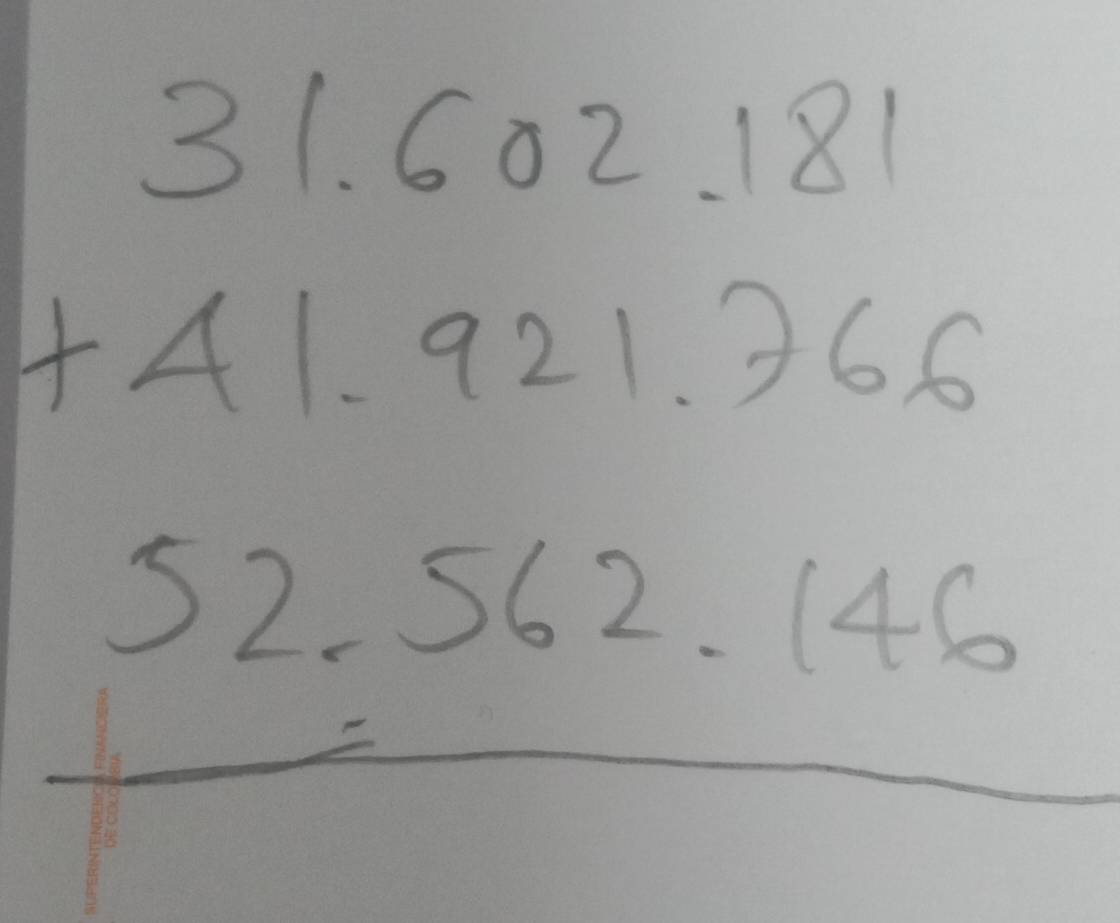 31.602.181
+41.921.766
52.562.146
=
SUPERINTENDENCIA FINANCIERA
DE COLOMBIA